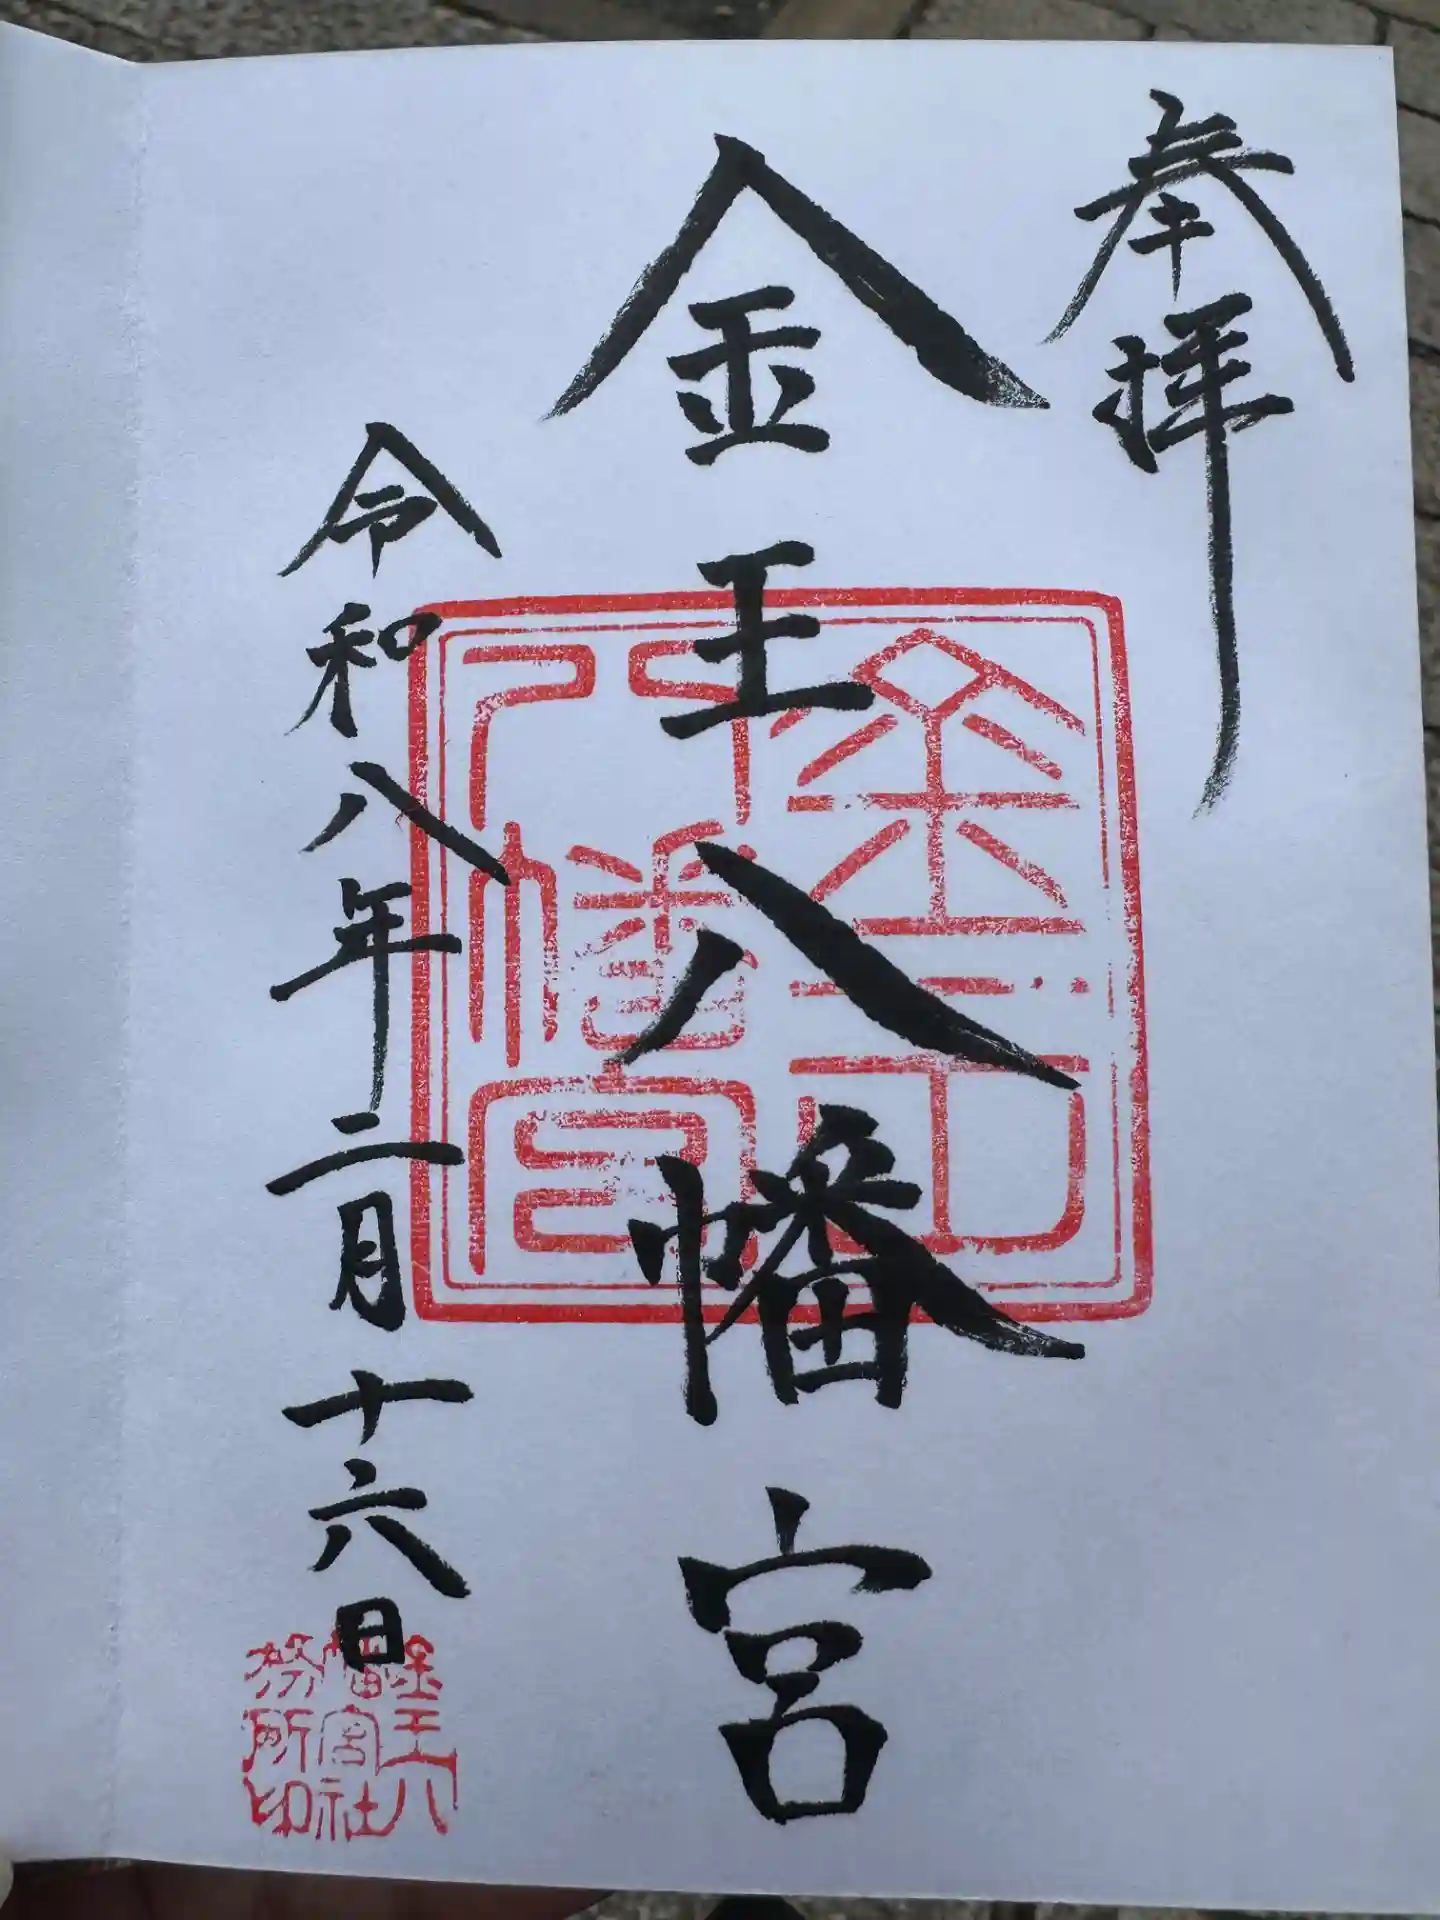 奉拝
金王八幡宮
令和八年二月十六日
金王八幡宮
金王八
幡宮社
務所印